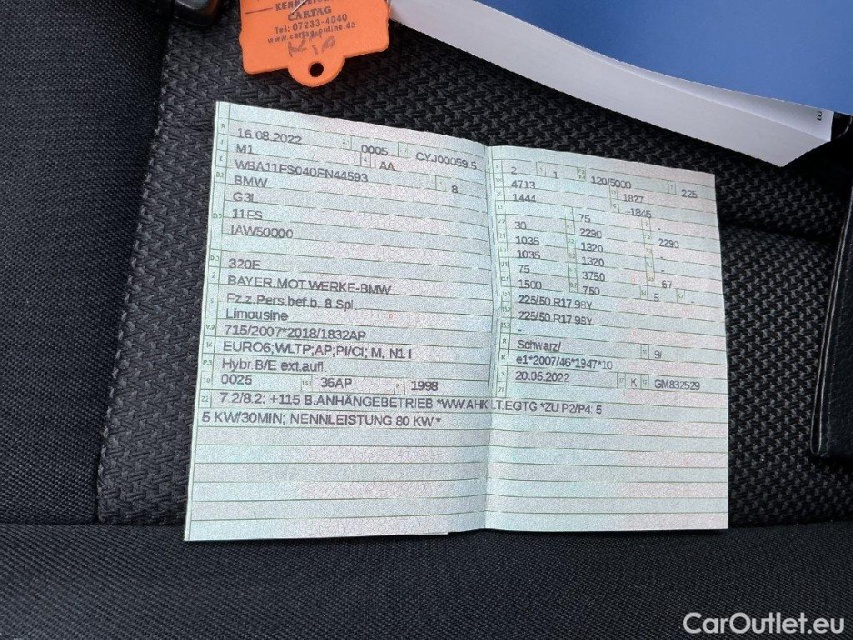 CARTAG
Tel: 07233-4040
KIA
16.08.2022 0005 CYJ00059 5
M1 AA
WBA11FS040FN44593 8
BMW
G3L
11FS
IAW50000
320E
BAYER.MOT.WERKE-BMW
Fz.z.Pers.bef.b. 8 Spl.
Limousine
715/2007*2018/1832AP
EURO6;WLTP;AP;PI/CI; M, N1 I
Hybr.B/E ext.aufl.
0025 36AP 1998
2 1 120/5000 225
4713 1827
1444 -1845
75 -
30 2290 -
1035 1320 2290
1035 1320 -
75 3750
1500 750 67
5 -
225/50 R17 98Y
225/50 R17 98Y
-
Schwarz/ 9/
e1*2007/46*1947*10
20.05.2022 K GM832529
7.2/8.2: +115 B.ANHÄNGEBETRIEB *WW.AHK LT.EGTG *ZU P2/P4: 5
5 KW/30MIN; NENNLEISTUNG 80 KW*
CarOutlet.eu